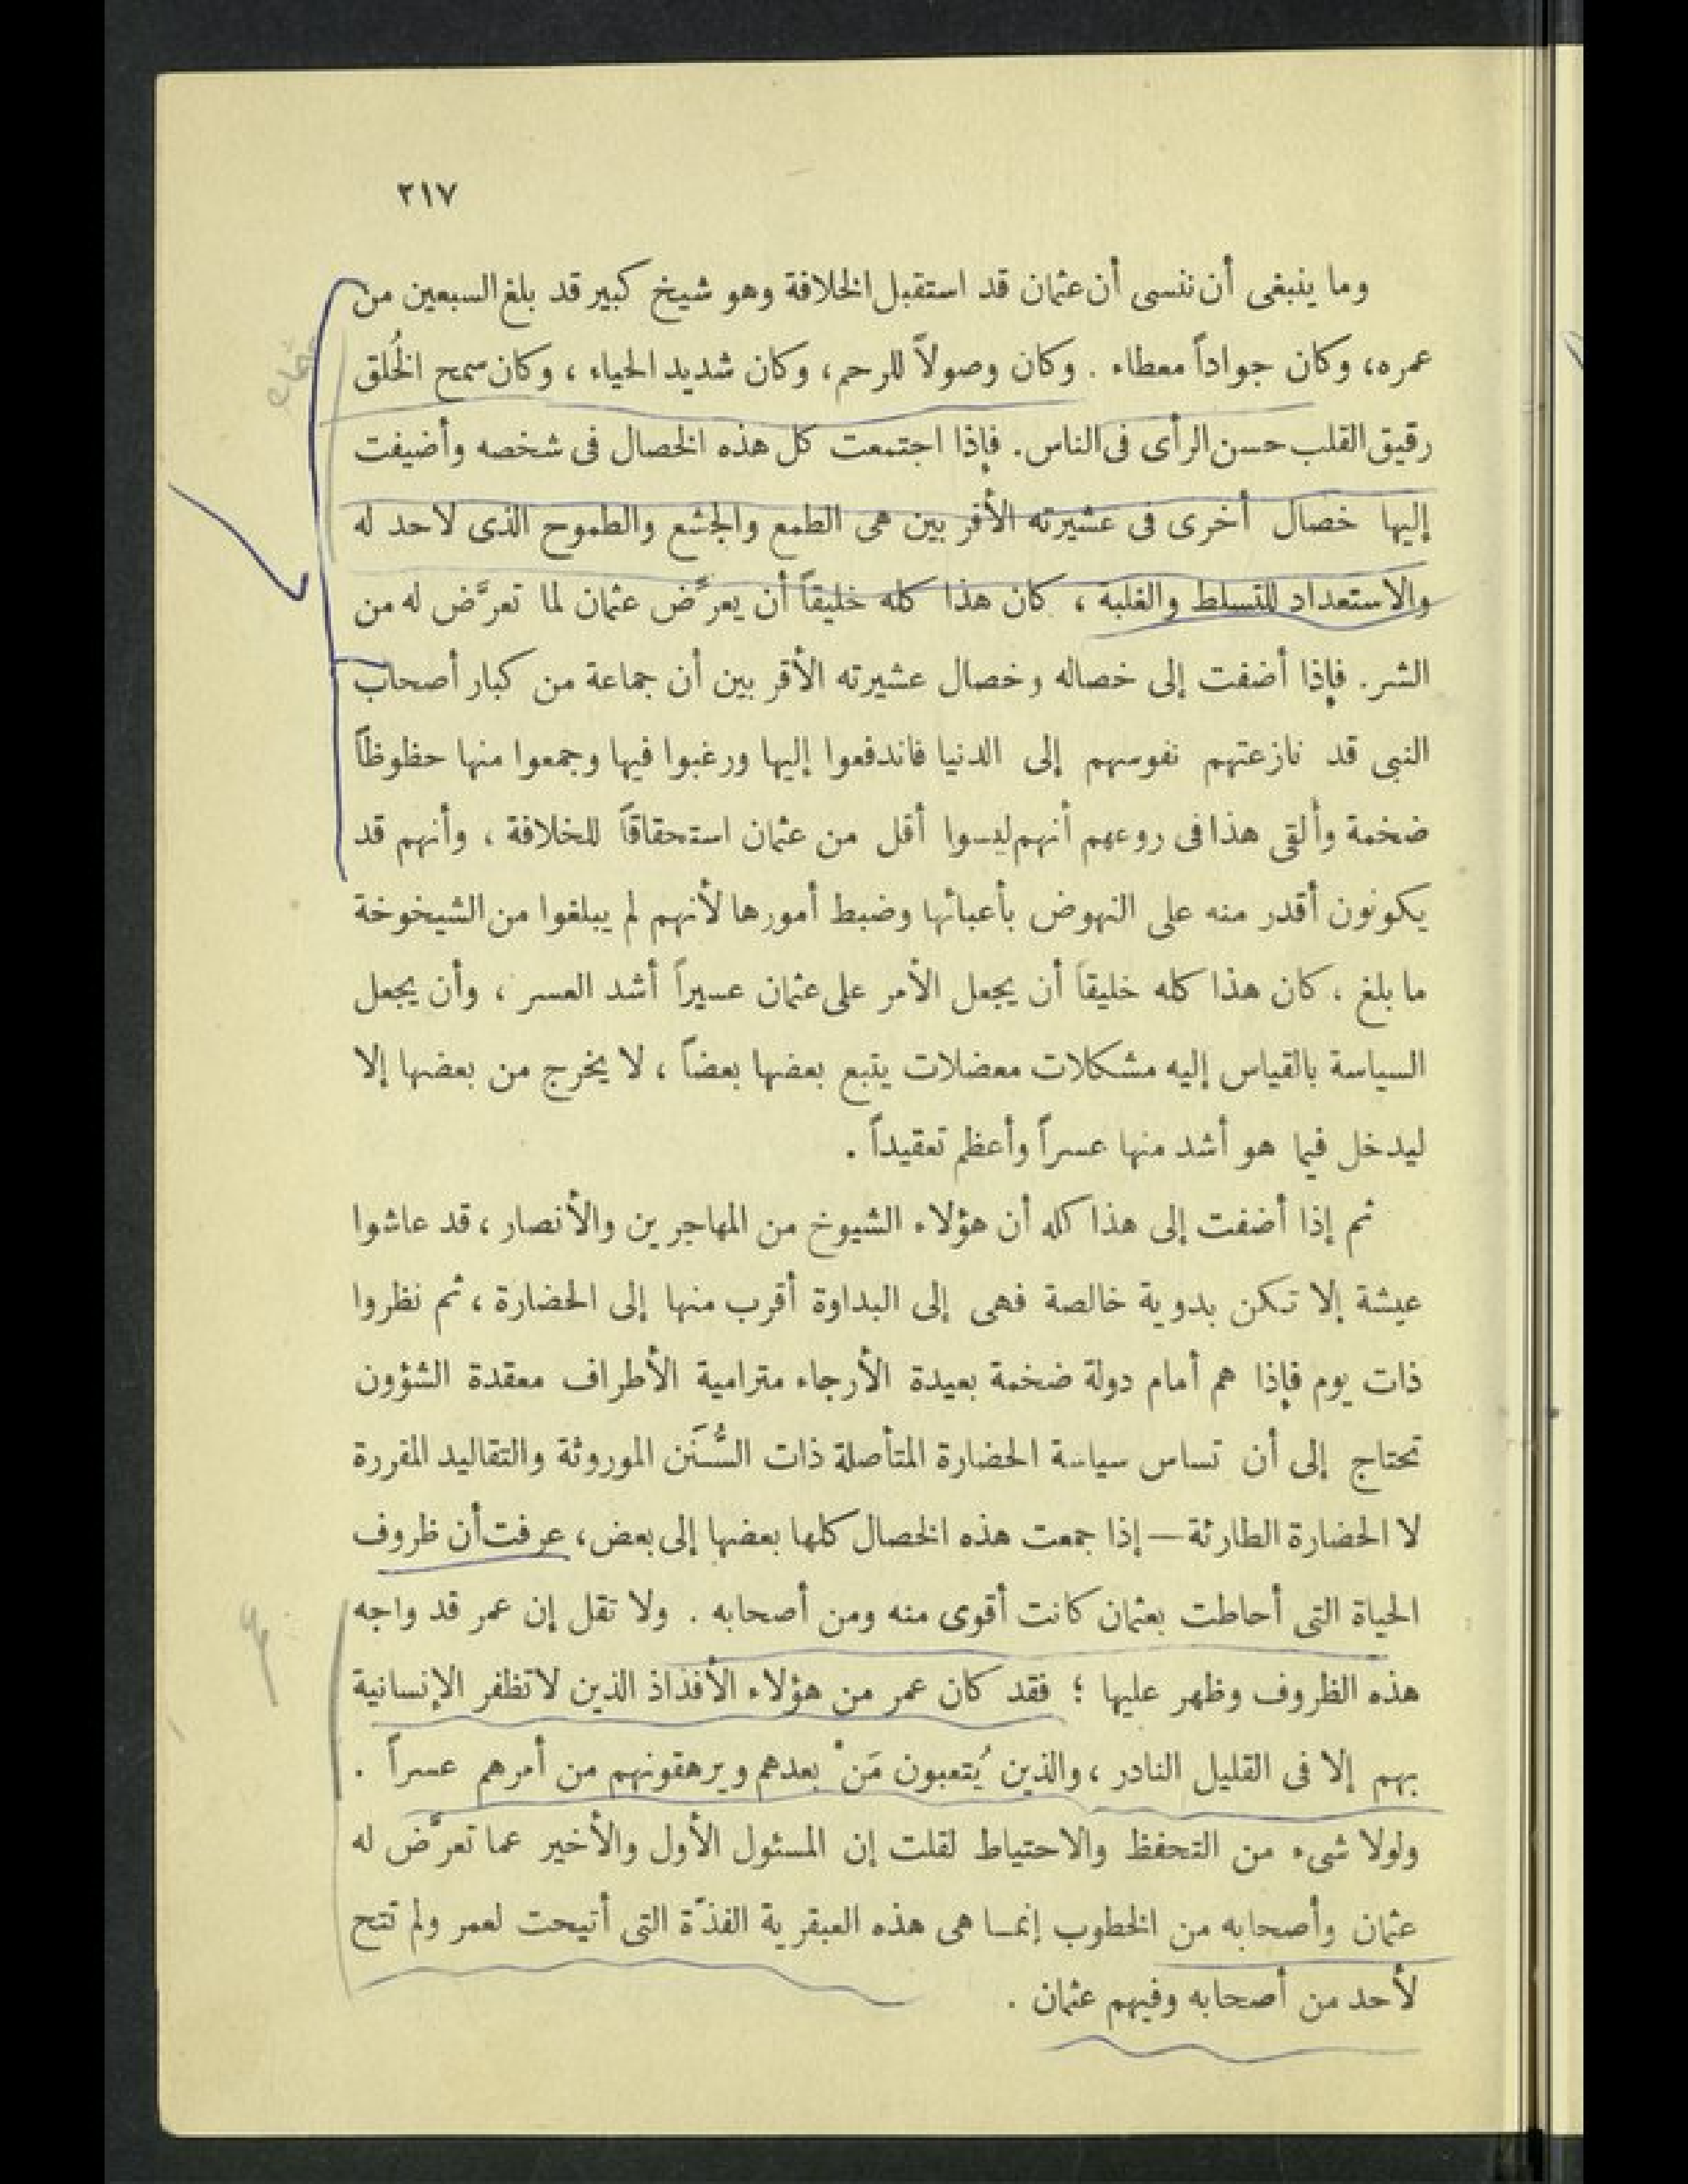 ٢١٧
وما ينبغى أن ننسى أن عثمان قد استقبل الخلافة وهو شيخ كبير قد بلغ السبعين من
عمره، وكان جواداً معطاء . وكان وصولاً للرحم، وكان شديد الحياء ، وكان سمح الخُلق
رقيق القلب حسن الرأى فى الناس. فإذا اجتمعت كل هذه الخصال فى شخصه وأضيفت
إليها خصال أخرى فى عشيرته الأقربين هى الطمع والجشع والطموح الذى لاحد له
والاستعداد للتسلط والغلبة ، كان هذا كله خليقاً أن يعرَّض عثمان لما تعرَّض له من
الشر. فإذا أضفت إلى خصاله وخصال عشيرته الأقربين أن جماعة من كبار أصحاب
النبى قد نازعتهم نفوسهم إلى الدنيا فاندفعوا إليها ورغبوا فيها وجمعوا منها حظوظاً
ضخمة وألقى هذا فى روعهم أنهم ليسوا أقل من عثمان استحقاقاً للخلافة ، وأنهم قد
يكونون أقدر منه على النهوض بأعبائها وضبط أمورها لأنهم لم يبلغوا من الشيخوخة
ما بلغ ، كان هذا كله خليقاً أن يجعل الأمر على عثمان عسيراً أشد العسر ، وأن يجعل
السياسة بالقياس إليه مشكلات معضلات يتبع بعضها بعضاً ، لا يخرج من بعضها إلا
ليدخل فيما هو أشد منها عسراً وأعظم تعقيداً .
ثم إذا أضفت إلى هذا كله أن هؤلاء الشيوخ من المهاجرين والأنصار ، قد عاشوا
عيشة إلا تكن بدوية خالصة فهى إلى البداوة أقرب منها إلى الحضارة ، ثم نظروا
ذات يوم فإذا هم أمام دولة ضخمة بعيدة الأرجاء مترامية الأطراف معقدة الشؤون
تحتاج إلى أن تساس سياسة الحضارة المتأصلة ذات السُّنَن الموروثة والتقاليد المقررة
لا الحضارة الطارئة — إذا جمعت هذه الخصال كلها بعضها إلى بعض، عرفت أن ظروف
الحياة التى أحاطت بعثمان كانت أقوى منه ومن أصحابه . ولا تقل إن عمر قد واجه
هذه الظروف وظهر عليها ؛ فقد كان عمر من هؤلاء الأفذاذ الذين لا تظفر الإنسانية
بهم إلا فى القليل النادر ، والذين يُتعبون مَنْ بعدهم ويرهقونهم من أمرهم عسراً .
ولولا شىء من التحفظ والاحتياط لقلت إن المسئول الأول والأخير عما تعرَّض له
عثمان وأصحابه من الخطوب إنما هى هذه العبقرية الفذّة التى أتيحت لعمر ولم تتح
لأحد من أصحابه وفيهم عثمان .